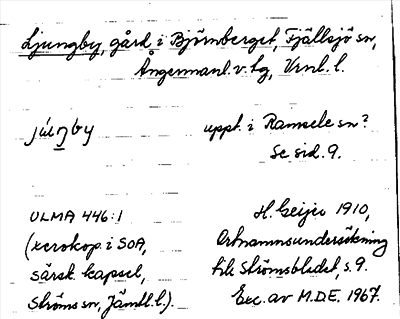 Ljungby, gård i Björnberget, Fjällsjö sn,
Ångermanl. v. lg, Vrnl. l.
júŋby uppt. i Ramsele sn?
Se sid. 9.
ULMA 446:1 H. Geijer 1910,
(xerokop. i SOA, Ortnamnsundersökning
särsk. kapsel, till Strömsbladet, s. 9.
Ströms sn, Jämtl. l.). Exc. av M.D.E. 1967.